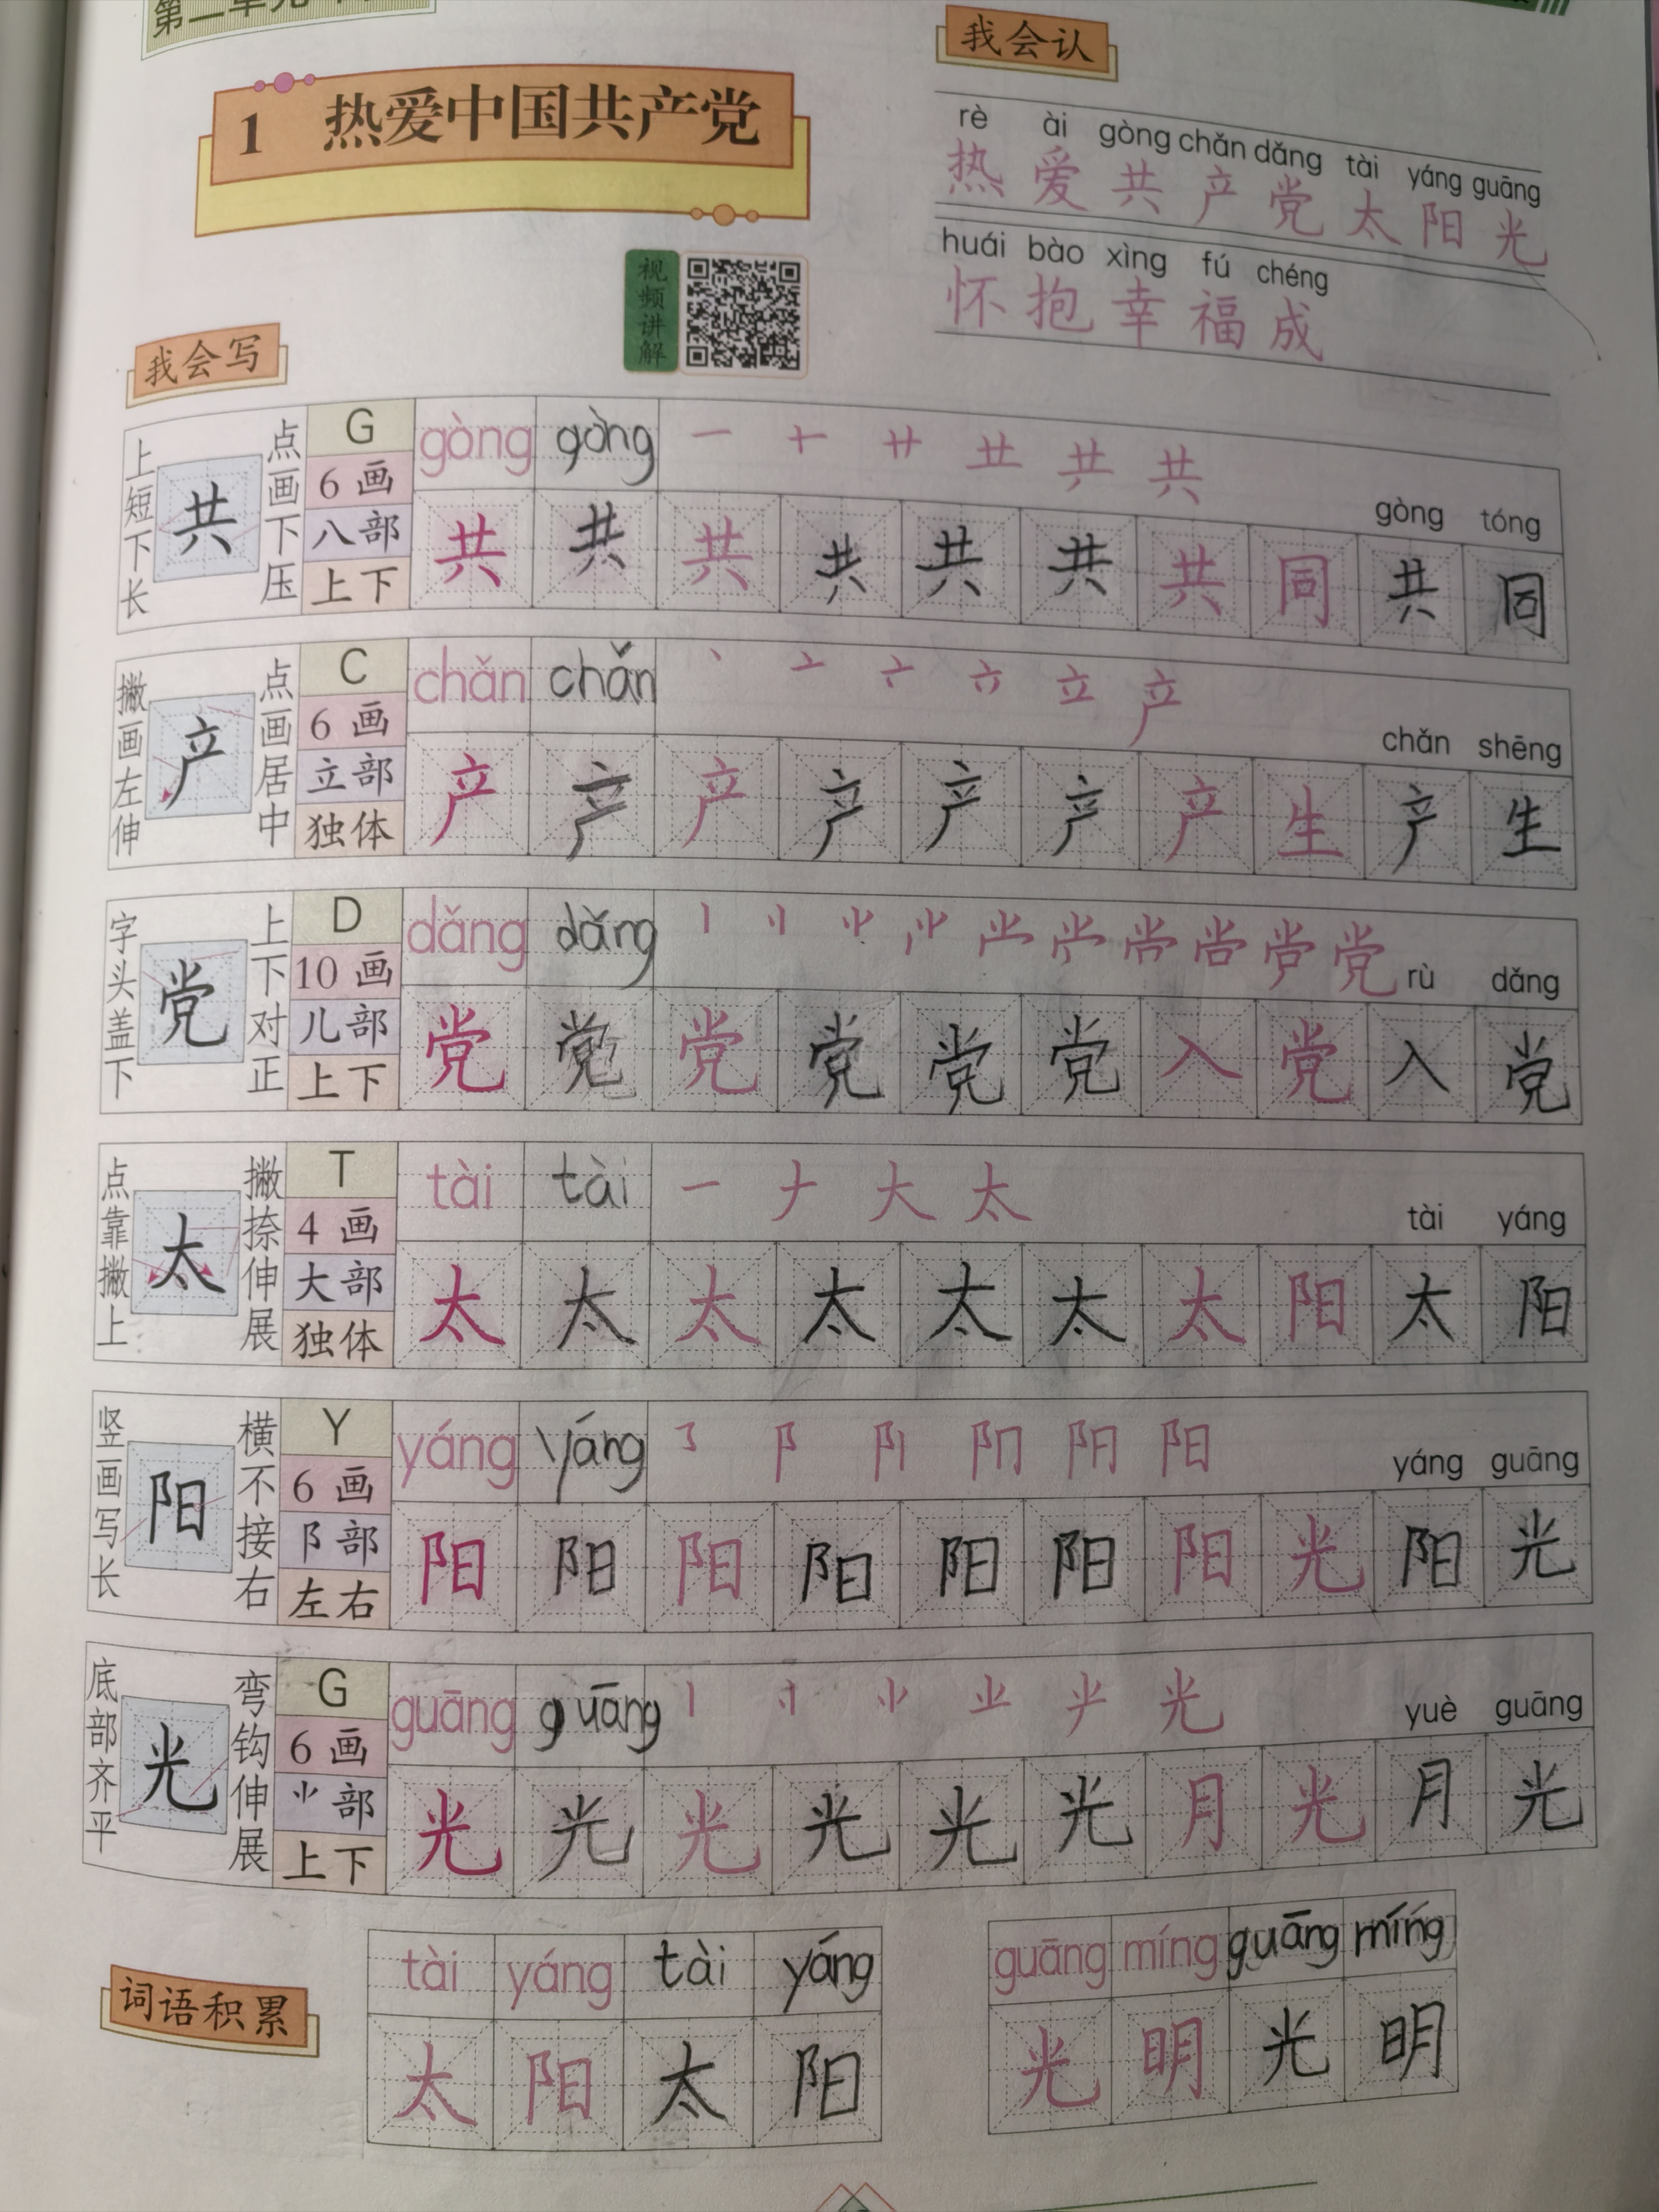 1 热爱中国共产党
我会认
rè ài gòng chǎn dǎng tài yáng guāng
热 爱 共 产 党 太 阳 光
huái bào xìng fú chéng
怀 抱 幸 福 成
视频讲解
我会写
上短下长
共
点画下压
G
6 画
八部
上下
gòng gòng 一 十 廾 龷 共 共
gòng tóng
共 共 共 共 共 共 共 同 共 同
撇画左伸
产
点画居中
C
6 画
立部
独体
chǎn chǎn
chǎn shēng
产 产 产 产 产 产 产 生 产 生
字头盖下
党
上下对正
D
10 画
儿部
上下
dǎng dǎng
rù dǎng
党 党 党 党 党 党 入 党 入 党
点靠撇上
太
撇捺伸展
T
4 画
大部
独体
tài tài 一 ナ 大 太
tài yáng
太 太 太 太 太 太 太 阳 太 阳
竖画写长
阳
横不接右
Y
6 画
阝部
左右
yáng yáng
yáng guāng
阳 阳 阳 阳 阳 阳 阳 光 阳 光
底部齐平
光
弯钩伸展
G
6 画
⺌部
上下
guāng guāng
yuè guāng
光 光 光 光 光 光 月 光 月 光
词语积累
tài yáng tài yáng guāng míng guāng míng
太 阳 太 阳 光 明 光 明